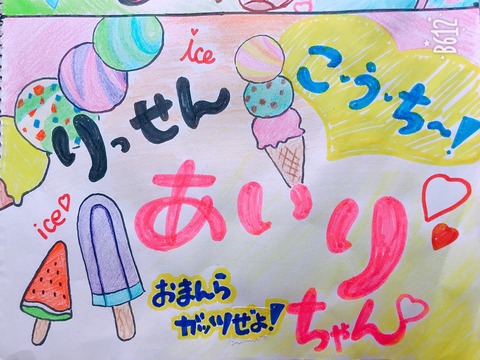 ice
こ・う・ち〜!
りっせん
あいり
ice
おまんら
ガッツぜよ!
ちゃん
B612